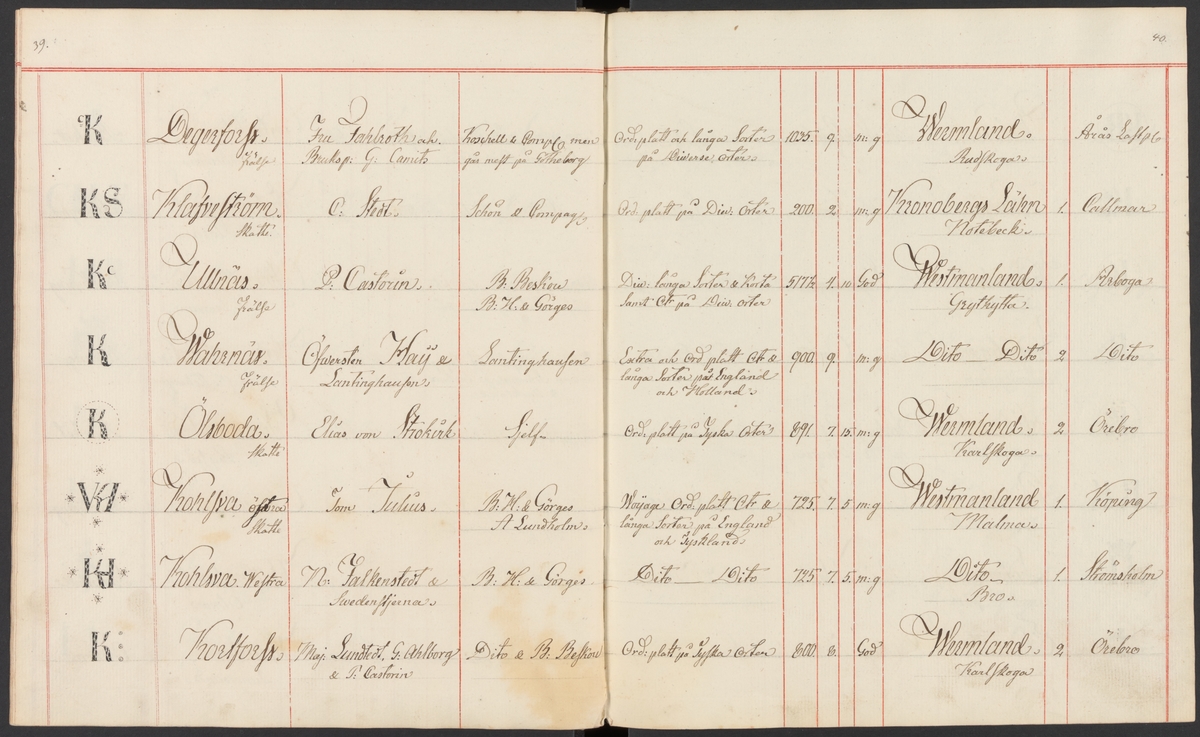 39.
40.
K Degerforss. Fru Fahlroth och Koschell & Comp. men Ord: platt och långa Sorter 1025. 9. m: g Wermland. Årås Lastpl
Frälse Bruksp: G: Camitz går mest på Götheborg på Diverse orter. Rudskoga.
KS Klafveström. C: Stedt. Schön & Compag. Ord. platt på Div: Orter 200. 2. m: g Kronobergs Lähn 1. Callmar
Skatte. Notebeck.
Kc Ullnäs. P: Castorin. B: Beskou Div: långa Sorter & Korta 517 4. 10. God Westmanland. 1. Arboga
Frälse B: H: & Görges samt Ctr på Div: orter Grythytta.
K Wahrnäs. Öfwersten Kaÿ & Lantinghausen Extra och Ord platt Ctr & 900. 9. m: g Dito Dito 2 Dito
Frälse Lantinghausen. långa Sorter på England
och Holland.
K Ölsboda. Elias von Strokirk Sjelf Ord: platt på Tyska Orter 891. 7. 15. m: g Wermland. 2 Örebro
Skatte Karlskoga.
VH Kohlsva östra Tom Julius. B: H: & Görges Woyage Ord: platt Ctr & 725. 7. 5 m: g Westmanland 1. Köping
Skatte A Lundholm. långa Sorter på England Malma.
och Tyskland.
KH Kohlsva Westra N: Falkenstedt & B: H: & Görges Dito Dito 725 7. 5. m: g Dito 1. Strömsholm
Swedenstjerna. Bro.
K: Kortforss. Maj: Lundstedt, G: Ahlborg Dito & B: Beskou Ord: platt på Tyska Orter 800 8. God Wermland. 2 Örebro
& P: Castorin Karlskoga